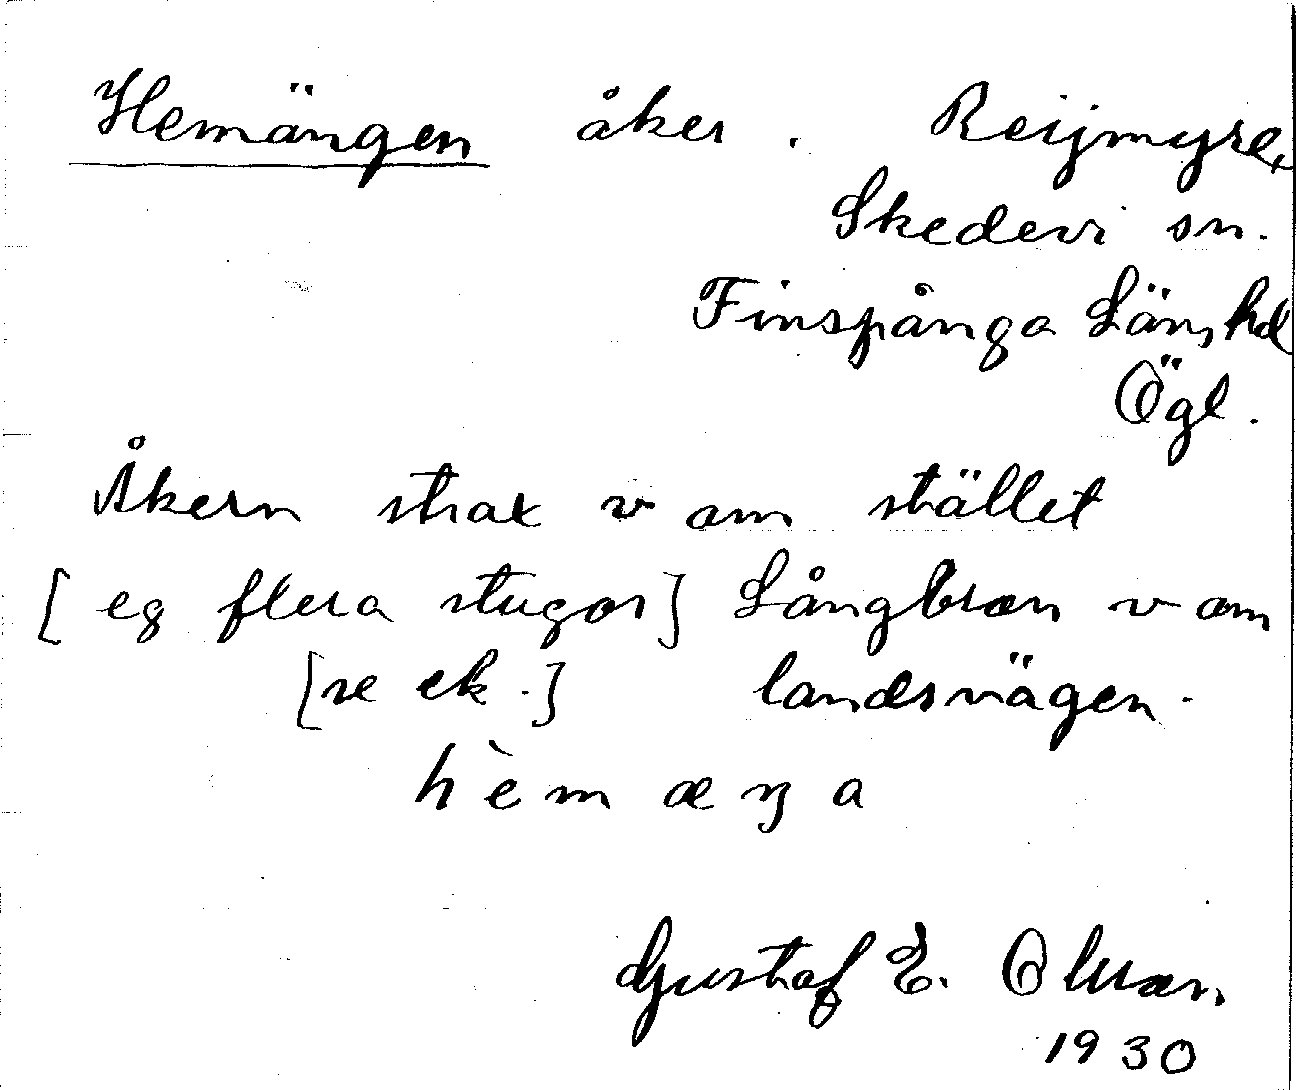 Hemängen åker. Reijmyre,
Skedevi sn.
Finspånga Läns hd
Ögl.
Åkern strax v om stället
[eg flera stugor] Långbron v om
[se ek.] landsvägen.
hèmæŋa
Gustaf E. Olsson
1930